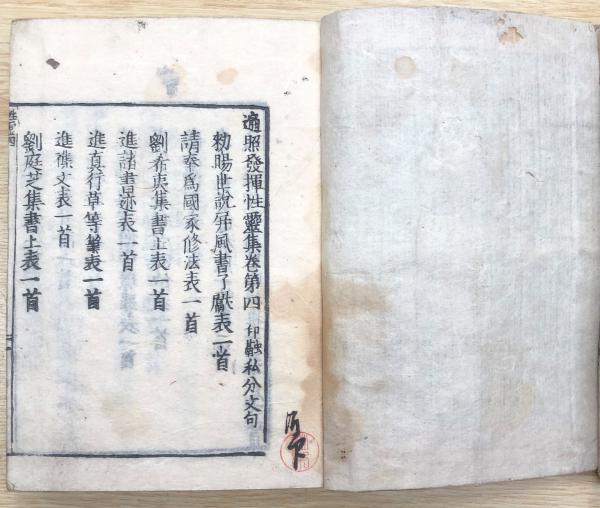 遍照發揮性靈集卷第四 印融私分文句
勅賜世說屏風書了獻表一首
請奉爲國家修法表一首
劉希夷集書上表一首
進諸書迹表一首
進真行草等筆表一首
進雜文表一首
劉庭芝集書上表一首